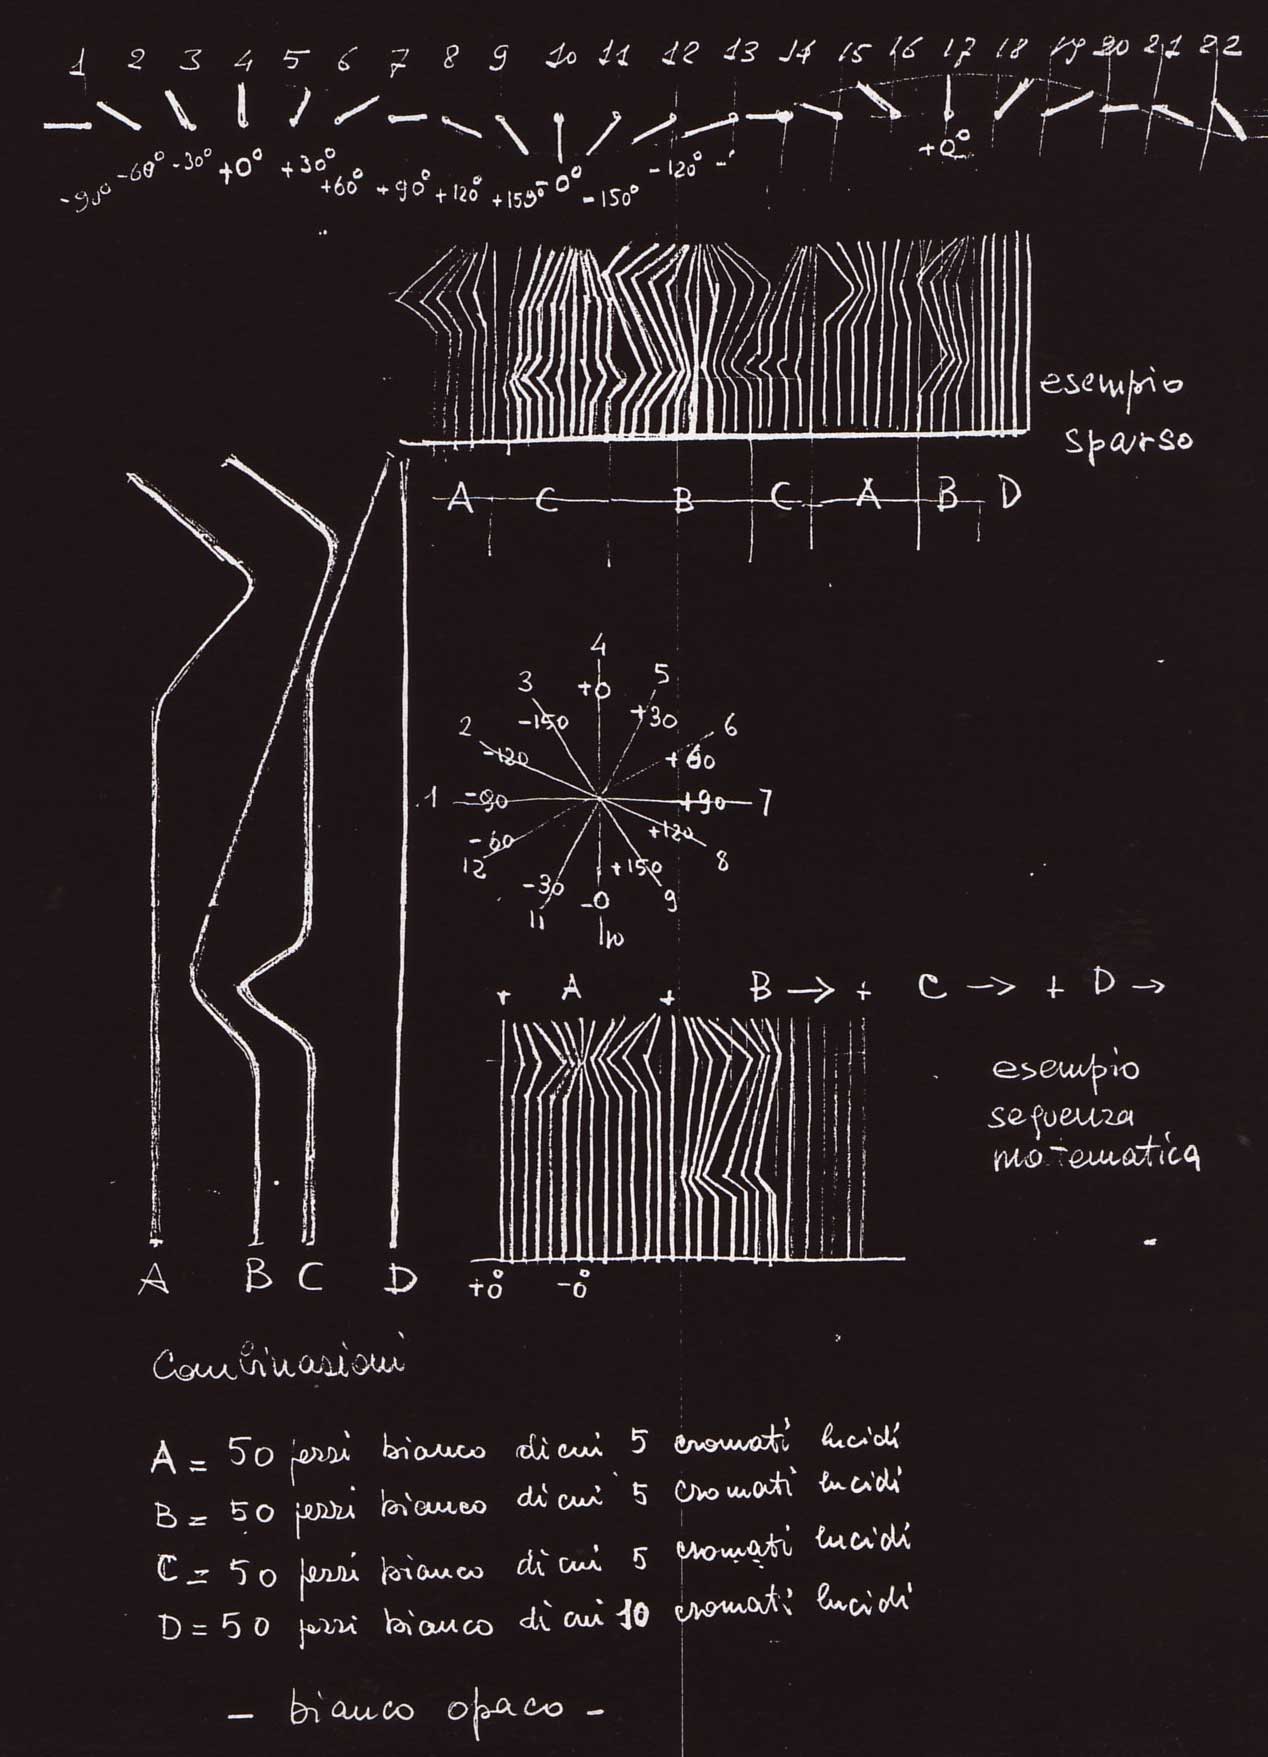 1 2 3 4 5 6 7 8 9 10 11 12 13 14 15 16 17 18 19 20 21 22
-90° -60° -30° +0° +30° +60° +90° +120° +150° -0° -150° -120° -' +0°
esempio
sparso
A C B C A B D
4
3 +0 5
-150 +30
2 6
-120 +60
1 -90 +90 7
-60 +120
12 +150 8
-30 -0 9
11 10
+ A + B → + C → + D →
esempio
sequenza
matematica
A B C D
+0° -0°
Combinazioni
A = 50 pezzi bianco di cui 5 cromati lucidi
B = 50 pezzi bianco di cui 5 cromati lucidi
C = 50 pezzi bianco di cui 5 cromati lucidi
D = 50 pezzi bianco di cui 10 cromati lucidi
- bianco opaco -